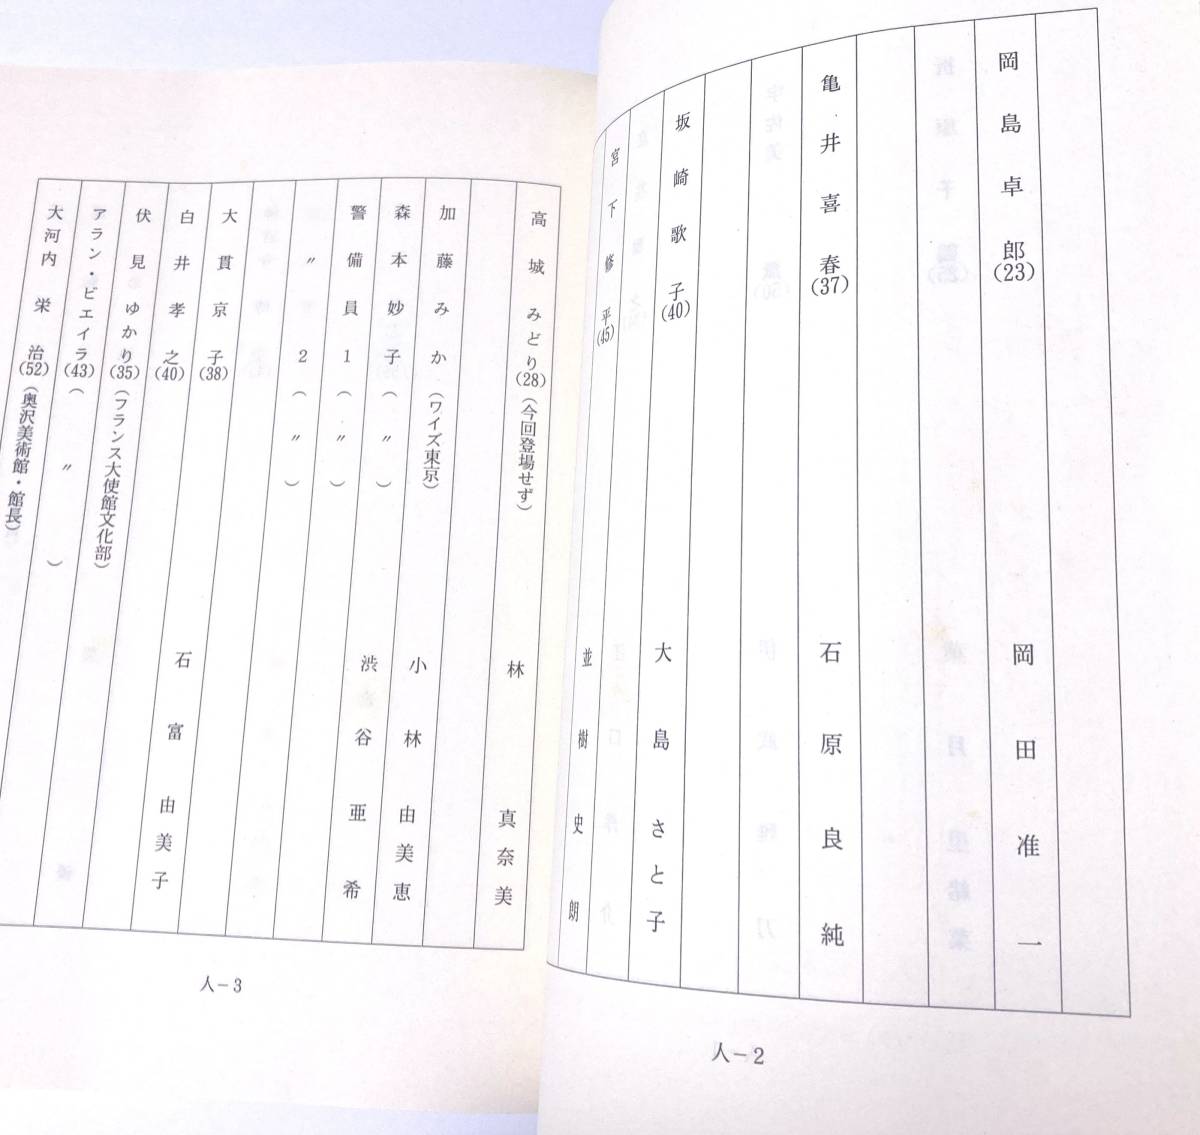 岡島卓郎(23) 岡田准一
亀井喜春(37) 石原良純
坂崎歌子(40) 大島さと子
宮下修平(45) 並樹史朗
人-2
高城みどり(28)(今回登場せず) 林真奈美
加藤みか(ワイズ東京)
森本妙子(〃) 小林由美恵
警備員1(〃) 渋谷亜希
〃2(〃)
大貫京子(38)
白井孝之(40) 石富由美子
伏見ゆかり(35)(フランス大使館文化部)
アラン・ビエイラ(43)(〃)
大河内栄治(52)(奥沢美術館・館長)
人-3